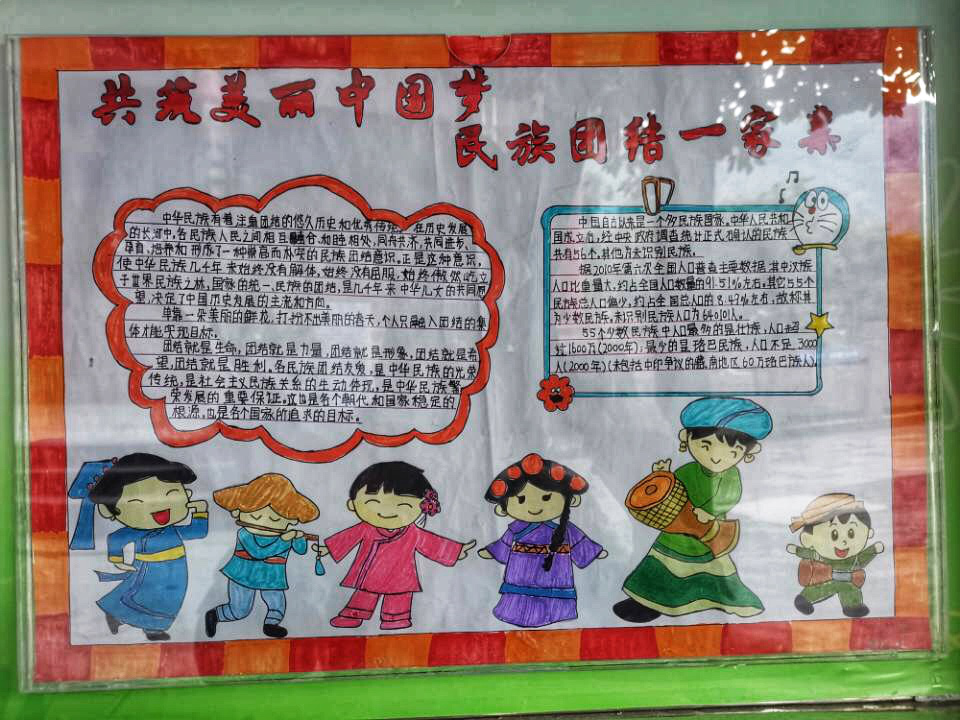 共筑美丽中国梦
民族团结一家亲
中华民族有着注重团结的悠久历史和优秀传统。在历史发展
的长河中,各民族人民之间相互融合、和睦相处,同舟共济,共同进步,
孕育、培养和形成了一种崇高而朴实的民族团结意识。正是这种意识,
使中华民族几千年来始终没有解体,始终没有屈服,始终傲然屹立
于世界民族之林。国家的统一、民族的团结,是几千年来中华儿女的共同愿
望,决定了中国历史发展的主流和方向。
单靠一朵美丽的鲜花,打扮不出美丽的春天,个人只有融入团结的集
体才能实现目标。
团结就是生命,团结就是力量,团结就是形象,团结就是希
望,团结就是胜利。各民族团结友爱,是中华民族的光荣
传统,是社会主义民族关系的生动体现,是中华民族繁
荣发展的重要保证。这也是各个朝代和国家稳定的
根源,也是各个国家的追求的目标。
中国自古以来是一个多民族国家。中华人民共和
国成立后,经中央政府调查统计正式确认的民族
共有56个,其他为未识别民族。
据2010年第六次全国人口普查主要数据,其中汉族
人口比重最大,约占全国人口数量的91.51%左右,其它55个
民族总人口偏少,约占全国总人口的8.49%左右,故称其
为少数民族。未识别民族人口为640101人。
55个少数民族中人口最多的是壮族,人口超
过1600万(2000年),最少的是珞巴民族,人口不足3000
人(2000年)(未包括中印争议的藏南地区60万珞巴族人)。